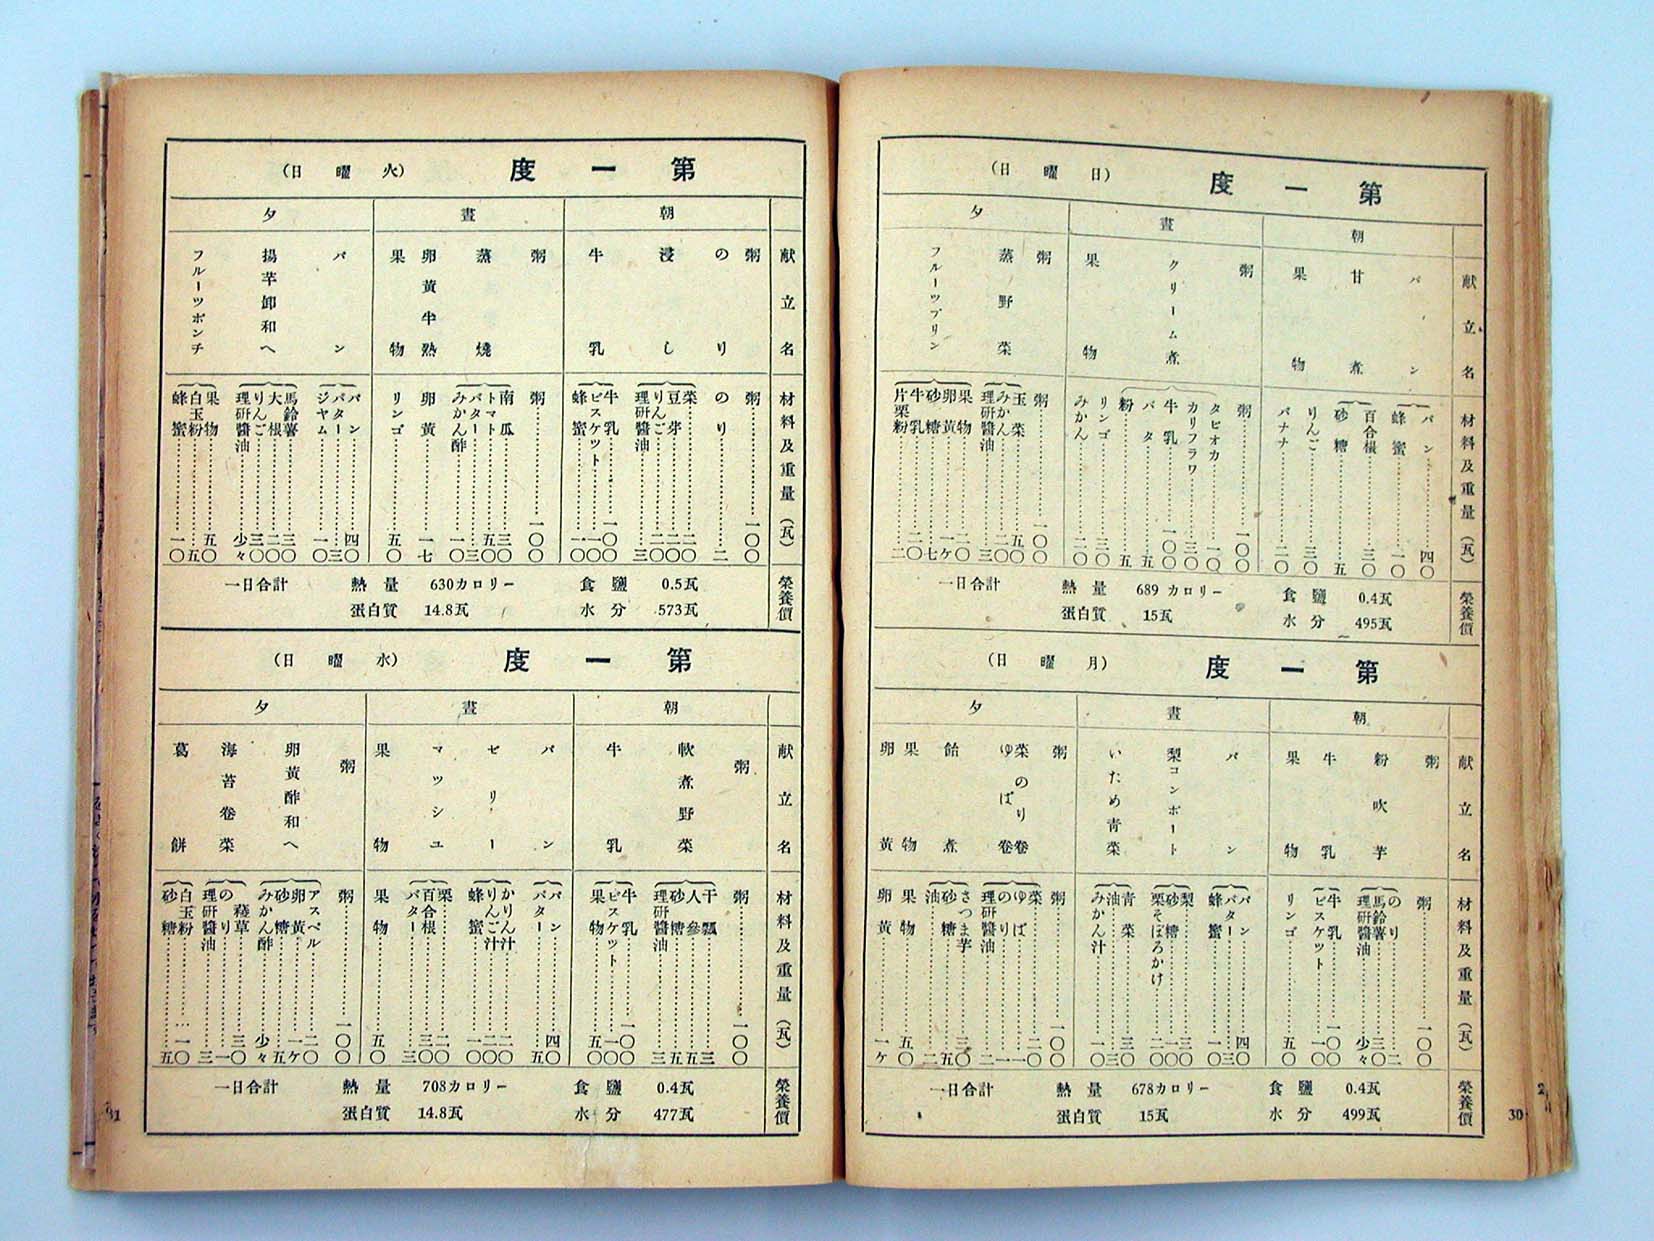 第一度 (日曜日)
朝
晝
夕
献立名
パン
甘煮
果物
粥
クリーム煮
果物
粥
蒸野菜
フルーツプリン
材料及重量(瓦)
パン……四〇
蜂蜜……一〇
百合根……三〇
砂糖……五
りんご……三〇
バナナ……二〇
粥……一〇〇
タピオカ……一〇
カリフラワ……三〇
牛乳……一〇〇
バタ……五
粉……五
リンゴ……三〇
みかん……二〇
粥……一〇〇
玉菜……五〇
みかん……二〇
理研醬油……三
果物……二〇
卵黄……一ケ
砂糖……七
牛乳……
片栗粉……二
榮養價
一日合計 熱量 689カロリー 食鹽 0.4瓦
蛋白質 15瓦 水分 495瓦
第一度 (月曜日)
朝
晝
夕
献立名
粥
粉吹芋
牛乳
果物
パン
梨コンポート
いため青菜
粥
菜のり卷
ゆば卷
飴煮
果物
卵黄
材料及重量(瓦)
粥……一〇〇
のり……二
馬鈴薯……三〇
理研醬油……少々
牛乳……一〇〇
ビスケツト……一〇
リンゴ……五〇
パン……四〇
バター……三
蜂蜜……一〇
梨……三〇
砂糖……一〇
栗そぼろかけ……二〇
青菜……三〇
油……三
みかん汁……一〇
粥……一〇〇
菜……二〇
ゆば……一
のり……一
理研醬油……二
さつま芋……三〇
砂糖……五
油……二
果物……五〇
卵黄……一ケ
榮養價
一日合計 熱量 678カロリー 食鹽 0.4瓦
蛋白質 15瓦 水分 499瓦
30
第一度 (火曜日)
朝
晝
夕
献立名
粥
のり
浸し
牛乳
粥
蒸燒
卵黄半熟
果物
パン
揚芋卸和へ
フルーツポンチ
材料及重量(瓦)
粥……一〇〇
のり……二
菜……二〇
豆芽……二〇
りんご……二〇
理研醬油……三
牛乳……一〇〇
ビスケツト……一〇
蜂蜜……一〇
粥……一〇〇
南瓜……三〇
トマト……五〇
バター……三
みかん酢……一〇
卵黄……一七
リンゴ……五〇
パン……四〇
バター……三
ジヤム……一〇
馬鈴薯……三〇
大根……二〇
りんご……三〇
理研醬油……少々
果物……五〇
白玉粉……五
蜂蜜……一〇
榮養價
一日合計 熱量 630カロリー 食鹽 0.5瓦
蛋白質 14.8瓦 水分 573瓦
第一度 (水曜日)
朝
晝
夕
献立名
粥
軟煮野菜
牛乳
パン
ゼリー
マツシユ
果物
粥
卵黄酢和へ
海苔卷菜
葛餅
材料及重量(瓦)
粥……一〇〇
干瓢……三
人參……五
砂糖……五
理研醬油……三
牛乳……一〇〇
ビスケツト……一〇
果物……五〇
パン……四〇
バター……五
かりん汁……二〇
りんご汁……二〇
蜂蜜……一〇
栗……二〇
百合根……三〇
バター……三
果物……五〇
粥……一〇〇
アスペル……二〇
卵黄……一ケ
砂糖……五
みかん酢……少々
菠薐草……三〇
のり……一
理研醬油……三
白玉粉……一〇
砂糖……五
榮養價
一日合計 熱量 708カロリー 食鹽 0.4瓦
蛋白質 14.8瓦 水分 477瓦